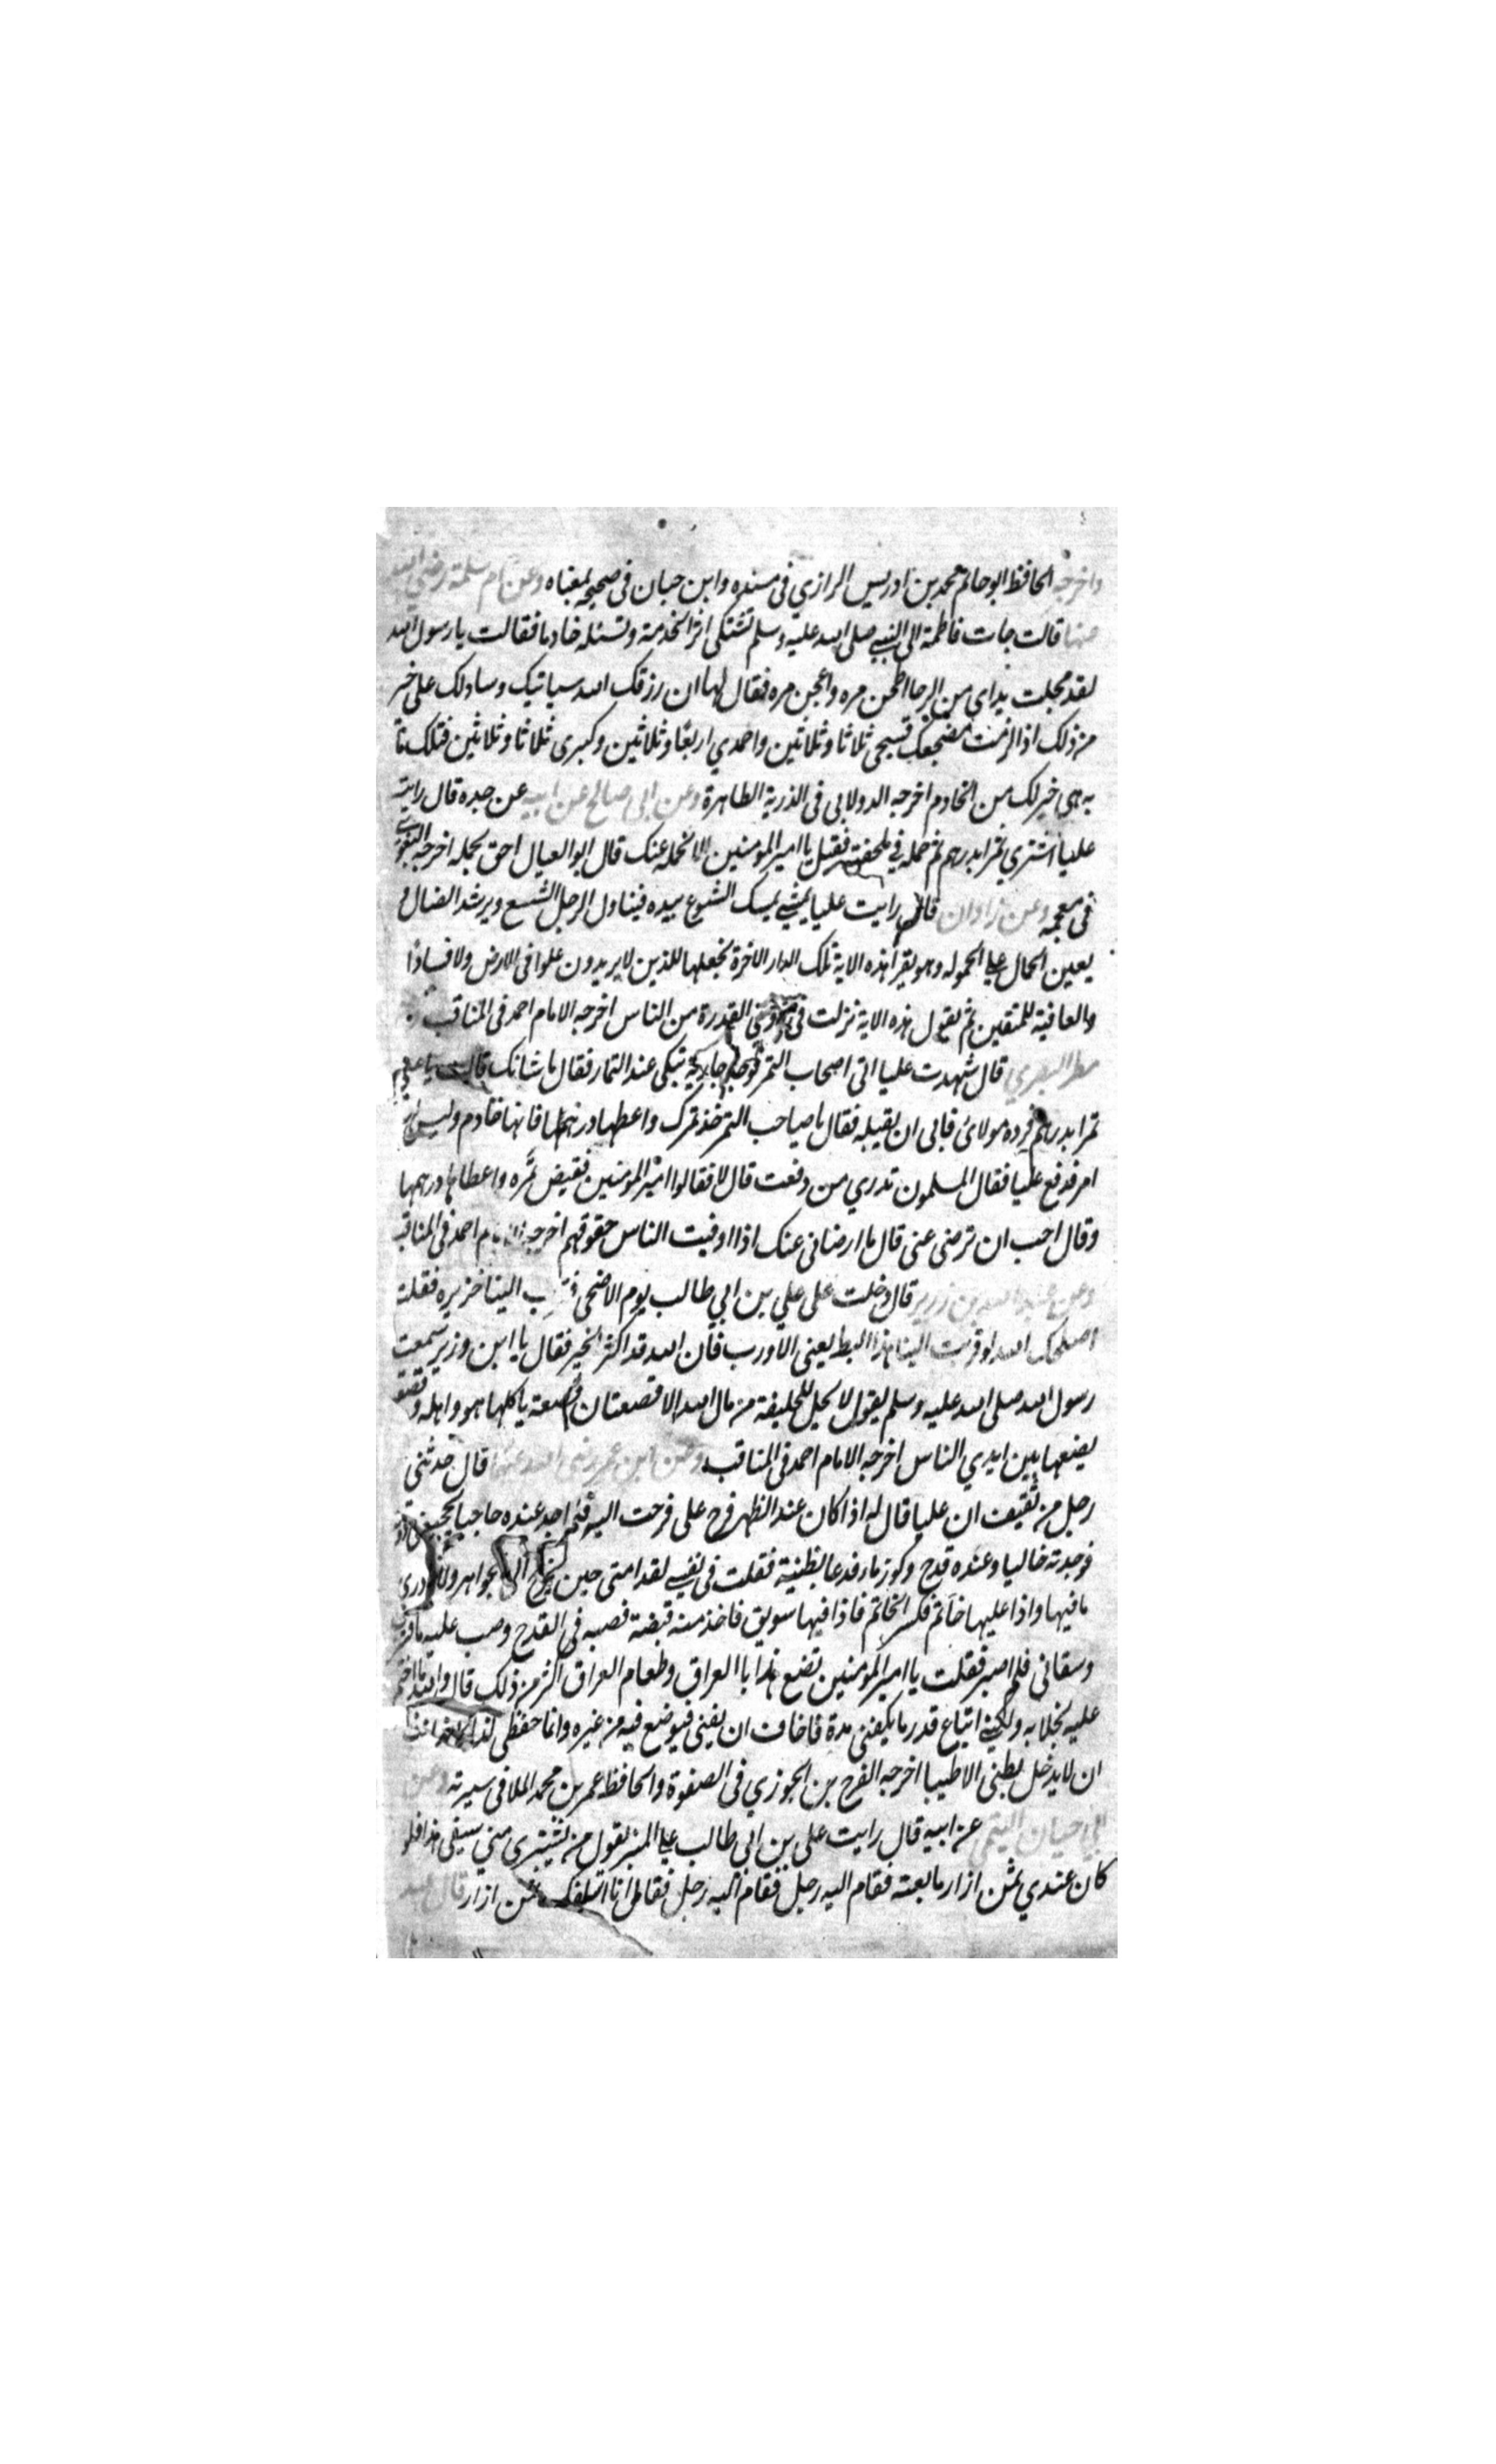 واخرجه الحافظ ابو حاتم محمد بن ادريس الرازي فى مسنده وابن حبان فى صحيحه بمعناه وعن ام سلمة رضي الله
عنها قالت جات فاطمة الى النبي صلى الله عليه وسلم تشتكى اثر الخدمة وتسئله خادما فقالت يا رسول الله
لقد مجلت يداى من الرحا اطحن مره واعجن مره فقال لها ان رزقك الله سياتيك وسادلك على خير
من ذلك اذا لزمت مضجعك فسبحى ثلاثا وثلاثين واحمدي اربعا وثلاثين وكبرى ثلاثا وثلاثين فتلك مأ
به هى خير لك من الخادم اخرجه الدولابى فى الذرية الطاهرة وعن ابى صالح عن ابيه عن جده قال رايت
عليا اشتري تمرا بدرهم ثم حمله في ملحفته فقيل يا امير المؤمنين الا نحمله عنك قال ابو العيال احق بحمله اخرجه البغوى
فى معجمه وعن زاذان قال رايت عليا يمشي يمسك الشسوع بيده فيناول الرجل الشسع ويرشد الضال و
يعين الحمال على الحموله وهو يقرا هذه الاية تلك الدار الاخرة نجعلها للذين لا يريدون علوا فى الارض ولا فسادًا
والعاقبة للمتقين ثم يقول هذه الاية نزلت فى ذوى القدرة من الناس اخرجه الامام احمد فى المناقب
مطر البصري قال شهدت عليا اتى اصحاب التمر فوجد جارية تبكى عند التمار فقال ما شانك قالت باعنى
تمرا بدرهم فرده مولاى فابى ان يقبله فقال يا صاحب التمر خذ تمرك واعطها درهمها فانها خادم وليس لها
امر فدفع عليا فقال المسلمون تدري من دفعت قال لا فقالوا امير المؤمنين فقبض تمره واعطاها درهمها
وقال احب ان ترضى عنى قال ما ارضانى عنك اذا اوفيت الناس حقوقهم اخرجه الامام احمد فى المناقب
وعن عبد الله بن زرير قال دخلت على علي بن ابي طالب يوم الاضحى فقرب الينا خزيره فقلت
اصلحك الله لو قربت الينا هذا البط يعنى الاورب فان الله قد اكثر الخير فقال يا ابن وزير سمعت
رسول الله صلى الله عليه وسلم يقول لا يحل للخليفة من مال الله الا قصعتان قصعة ياكلها هو واهله وقصعة
يضعها بين ايدي الناس اخرجه الامام احمد فى المناقب وعن ابن عمر رضى الله عنهما قال حدثنى
رجل من ثقيف ان عليا قال له اذا كان عند الظهر فرح على فرحت اليه فلم اجد عنده حاجبا يحجبنى دونه
فوجدته خاليا وعنده قدح وكوز ماء فدعا بظنية فقلت فى نفسي لقد امننى حين يخرج الى جواهر ولا ادرى
ما فيها واذا عليها خاتم فكسر الخاتم فاذا فيها سويق فاخذ منه قبضة فصبه فى القدح وصب عليه ماء فشرب
وسقانى فلم اصبر فقلت يا امير المؤمنين تضع هذا با العراق وطعام العراق اكثر من ذلك قال والله ما اختم
عليه بخلا به ولكني ابتاع قدر ما يكفنى مدة فاخاف ان يفنى فيوضع فيه من غيره وانما حفظى لذلك
ان لا يدخل بطنى الا طيبا اخرجه الفرح بن الجوزي فى الصفوة والحافظ عمر بن محمد الملا فى سيرته وعن
ابى حيان التيمى عن ابيه قال رايت على بن ابى طالب على المنبر يقول من يشترى مني سيفى هذا فلو
كان عندي ثمن ازار ما بعته فقام اليه رجل فقام اليه رجل فقال انا اسلفك ثمن ازار قال عبد